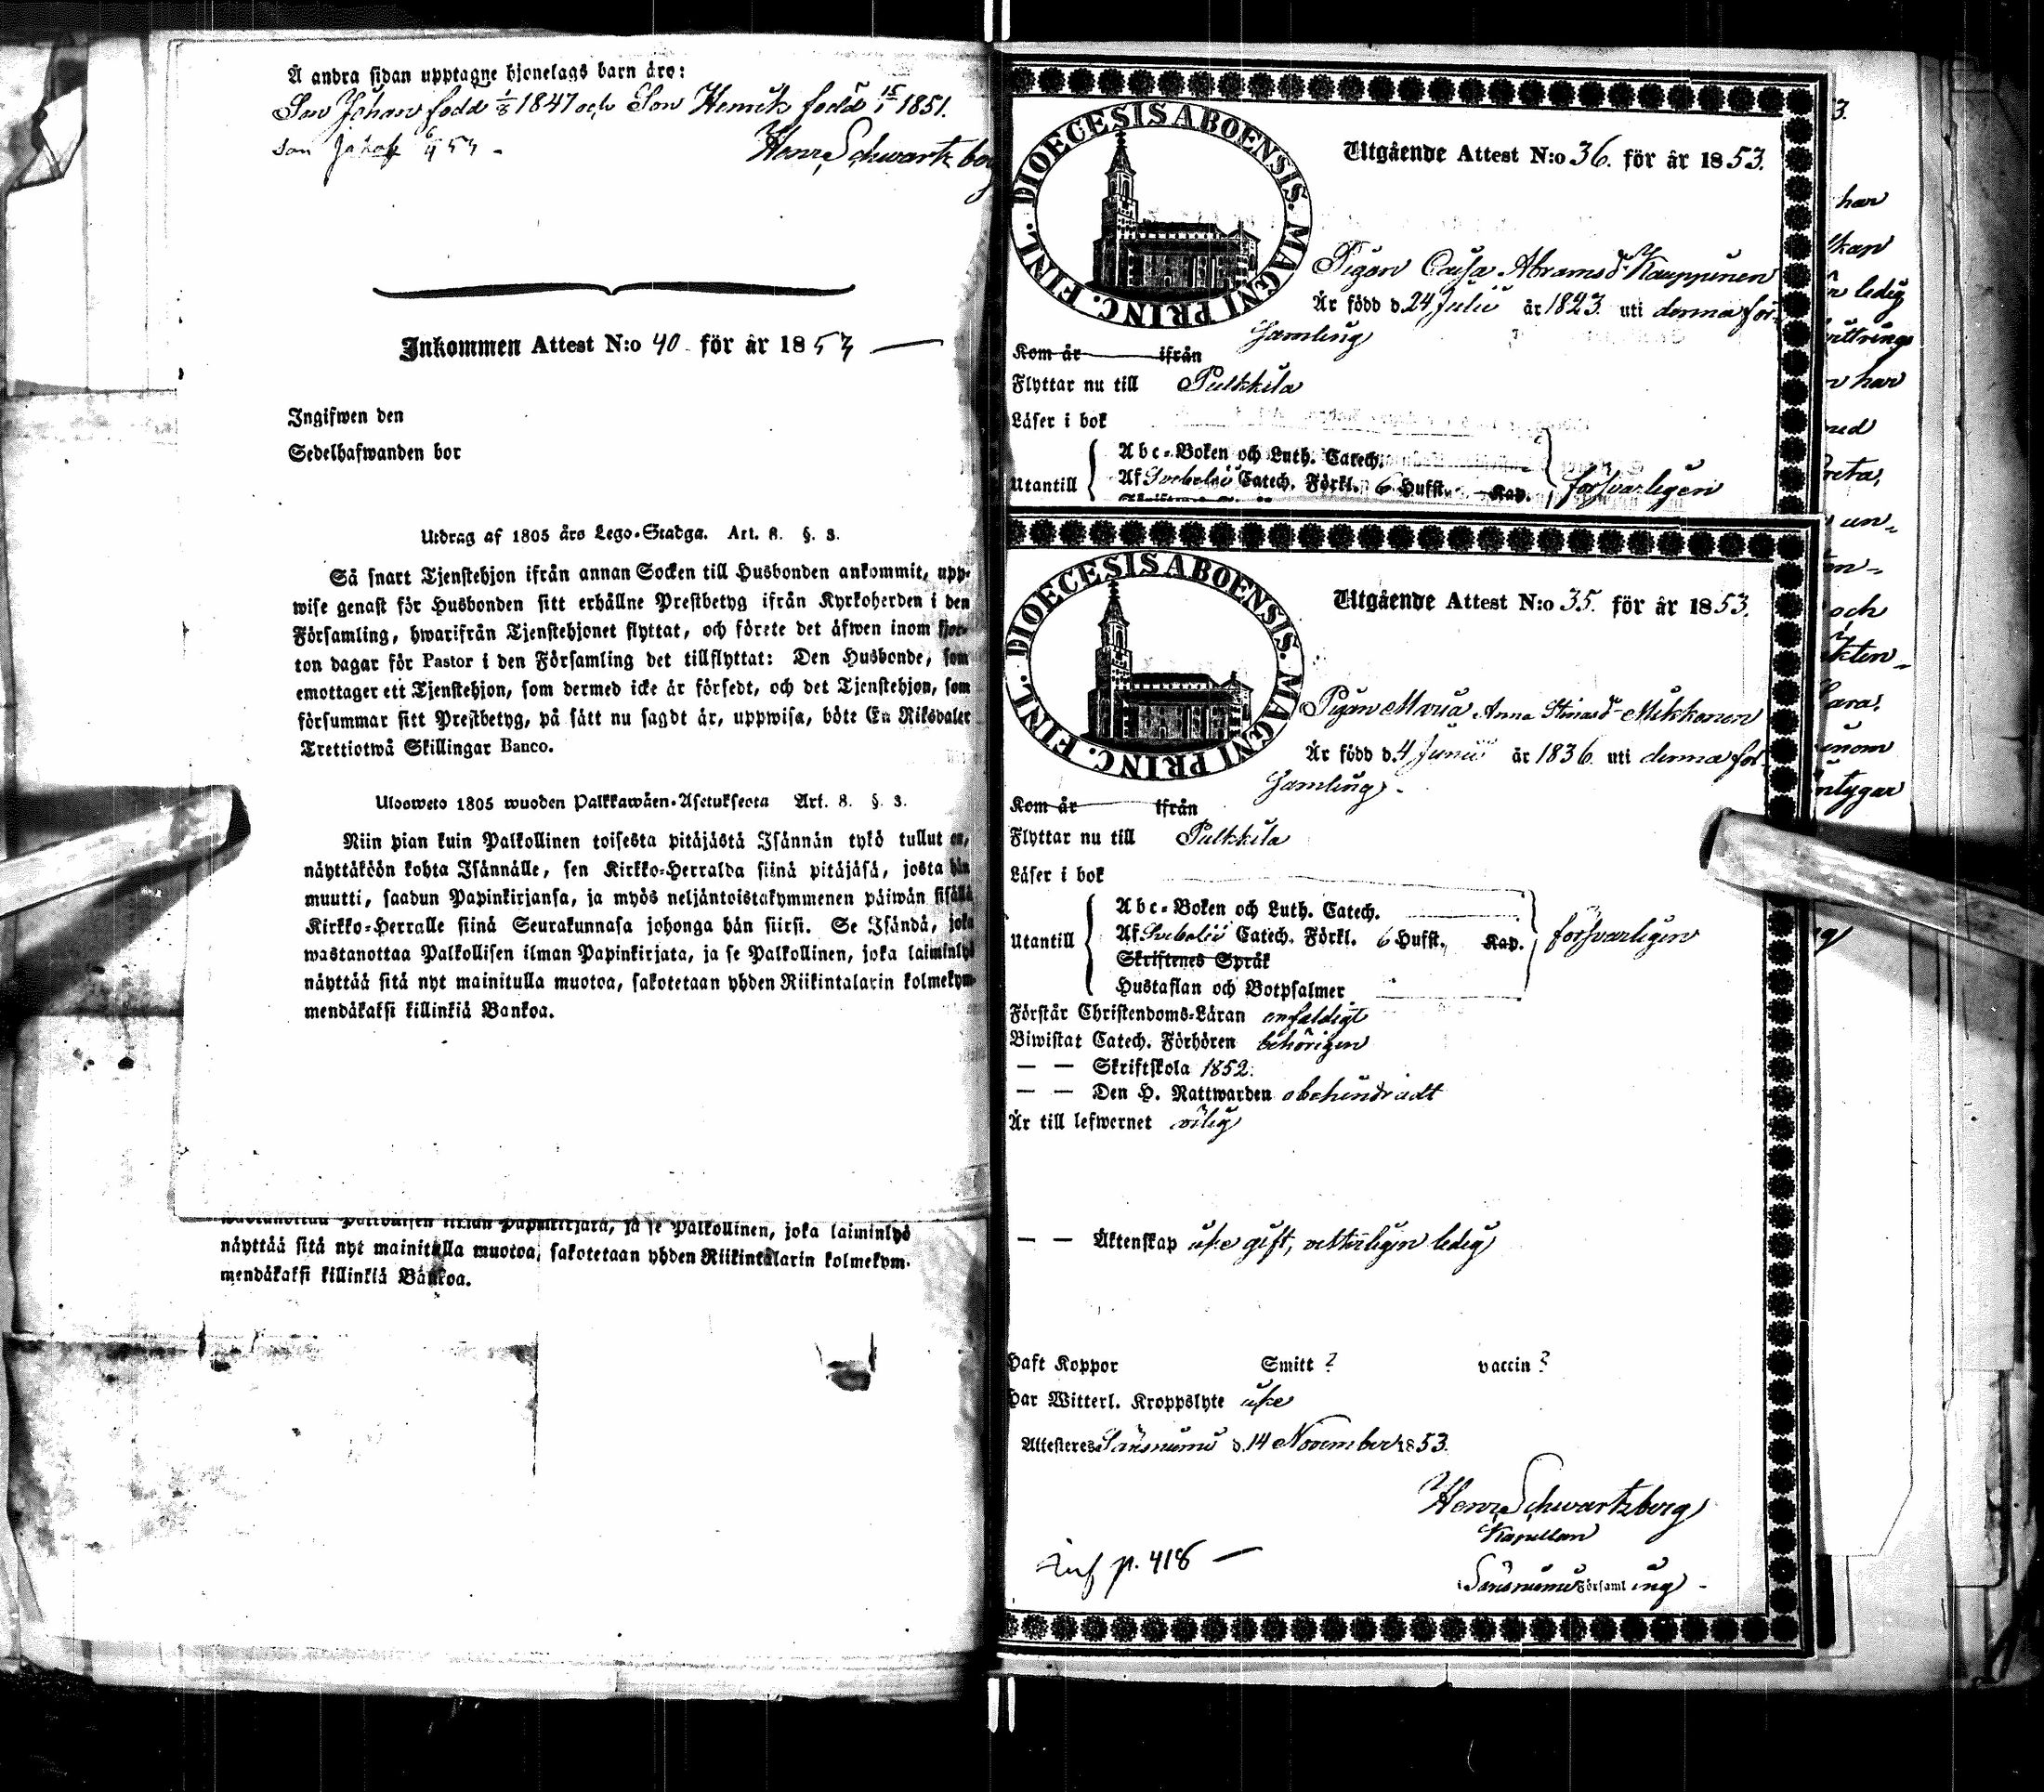 Å andra sidan upptagne hjonelags barn äro:
Son Johan född 1/8 1847 och Son Henrik född 15/1 1851.
Son Jakob 53 -
Henr Schwartzberg
Inkommen Attest N:o 40 för år 1853
Ingifwen den
Sedelhafwanden bor
Utdrag af 1805 års Lego-Stadga. Art. 8. §. 3.
Så snart Tjenstehjon ifrån annan Socken till Husbonden ankommit, upp-
wise genast för Husbonden sitt erhållne Prestbetyg ifrån Kyrkoherden i den
Församling, hwarifrån Tjenstehjonet flyttat, och förete det äfwen inom fjor-
ton dagar för Pastor i den Församling det tillflyttat: Den Husbonde, som
emottager ett Tjenstehjon, som dermed icke är försedt, och det Tjenstehjon, som
försummar sitt Prestbetyg, på sätt nu sagdt är, uppwisa, böte En Riksdaler
Trettiotwå Skillingar Banco.
Ulosweto 1805 wuoden Palkkawäen-Asetuksesta Art. 8. §. 3.
Niin pian kuin Palkollinen toisesta pitäjästä Isännän tykö tullut on,
näyttäköön kohta Isännälle, sen Kirkko-Herralda siinä pitäjäsä, josta hän
muutti, saadun Papinkirjansa, ja myös neljäntoistakymmenen päiwän sisällä
Kirkko-Herralle siinä Seurakunnasa johonga hän siirsi. Se Isändä, joka
wastanottaa Palkollisen ilman Papinkirjata, ja se Palkollinen, joka laiminlyö
näyttää sitä nyt mainitulla muotoa, sakotetaan yhden Riikintalarin kolmekym-
mendäkaksi killinkiä Bankoa.
wastanottaa Palkollisen ilman Papinkirjata, ja se Palkollinen, joka laiminlyö
näyttää sitä nyt mainitulla muotoa, sakotetaan yhden Riikintalarin kolmekym-
mendäkaksi killinkiä Bankoa.
DIOECESIS ABOENSIS. MAGNI PRINC. FINL.
Utgående Attest N:o 36. för år 1853.
Pigan Caisa Abramsdr Kauppinen
Är född d. 24 Julii år 1823. uti denna för-
samling
Kom år ifrån
Flyttar nu till Pulkkila
Läser i bok
Utantill
Abc-Boken och Luth. Catech.
Af Svebelii Catech. Förkl. 6 Hufst. Kap. försvarligen
DIOECESIS ABOENSIS. MAGNI PRINC. FINL.
Utgående Attest N:o 35. för år 1853.
Pigan Maria Anna Stinasdr Mikkonen
Är född d. 4 Junii år 1836. uti denna för-
samling.
Kom år ifrån
Flyttar nu till Pulkkila
Läser i bok
Utantill
Abc-Boken och Luth. Catech.
Af Svebelii Catech. Förkl. 6 Hufst. Kap. försvarligen
Skriftenes Språk
Hustaflan och Botpsalmer
Förstår Christendoms-Läran enfaldigt
Biwistat Catech. Förhören behörigen
— — Skriftskola 1852.
— — Den H. Nattwarden obehindradt
Är till lefwernet
— — Äktenskap icke gift, veterligen ledig
Haft Koppor Smitt ? vaccin ?
Har Witterl. Kroppslyte icke
Attesteres Säräisniemi d. 14 November 1853.
Henr Schwartzberg
Kapellan
i Säräisniemi Församling.
Inf p. 418 —
har
ledig
har
och